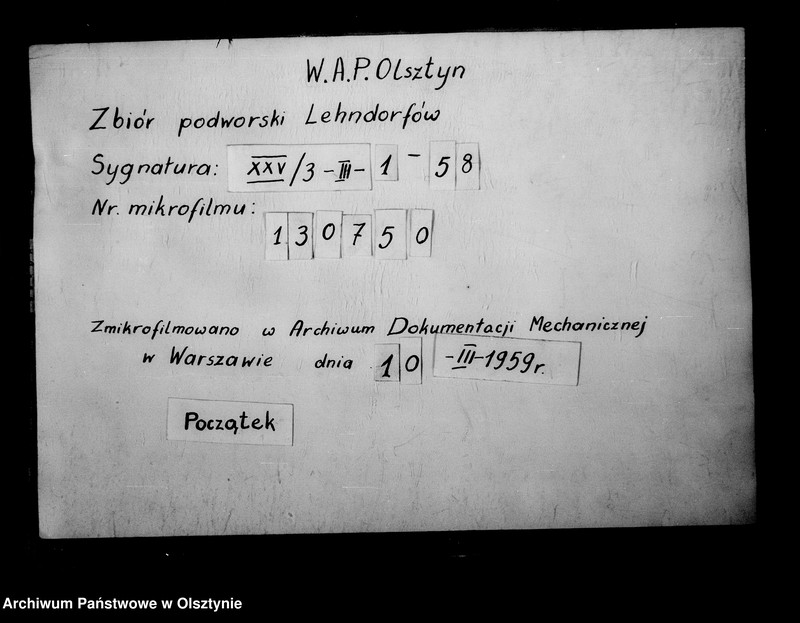 W.A.P. Olsztyn
Zbiór podworski Lehndorfów
Sygnatura: XXV/3-III-1-58
Nr. mikrofilmu: 130750
Zmikrofilmowano w Archiwum Dokumentacji Mechanicznej
w Warszawie dnia 10-III-1959r.
Początek
Archiwum Państwowe w Olsztynie